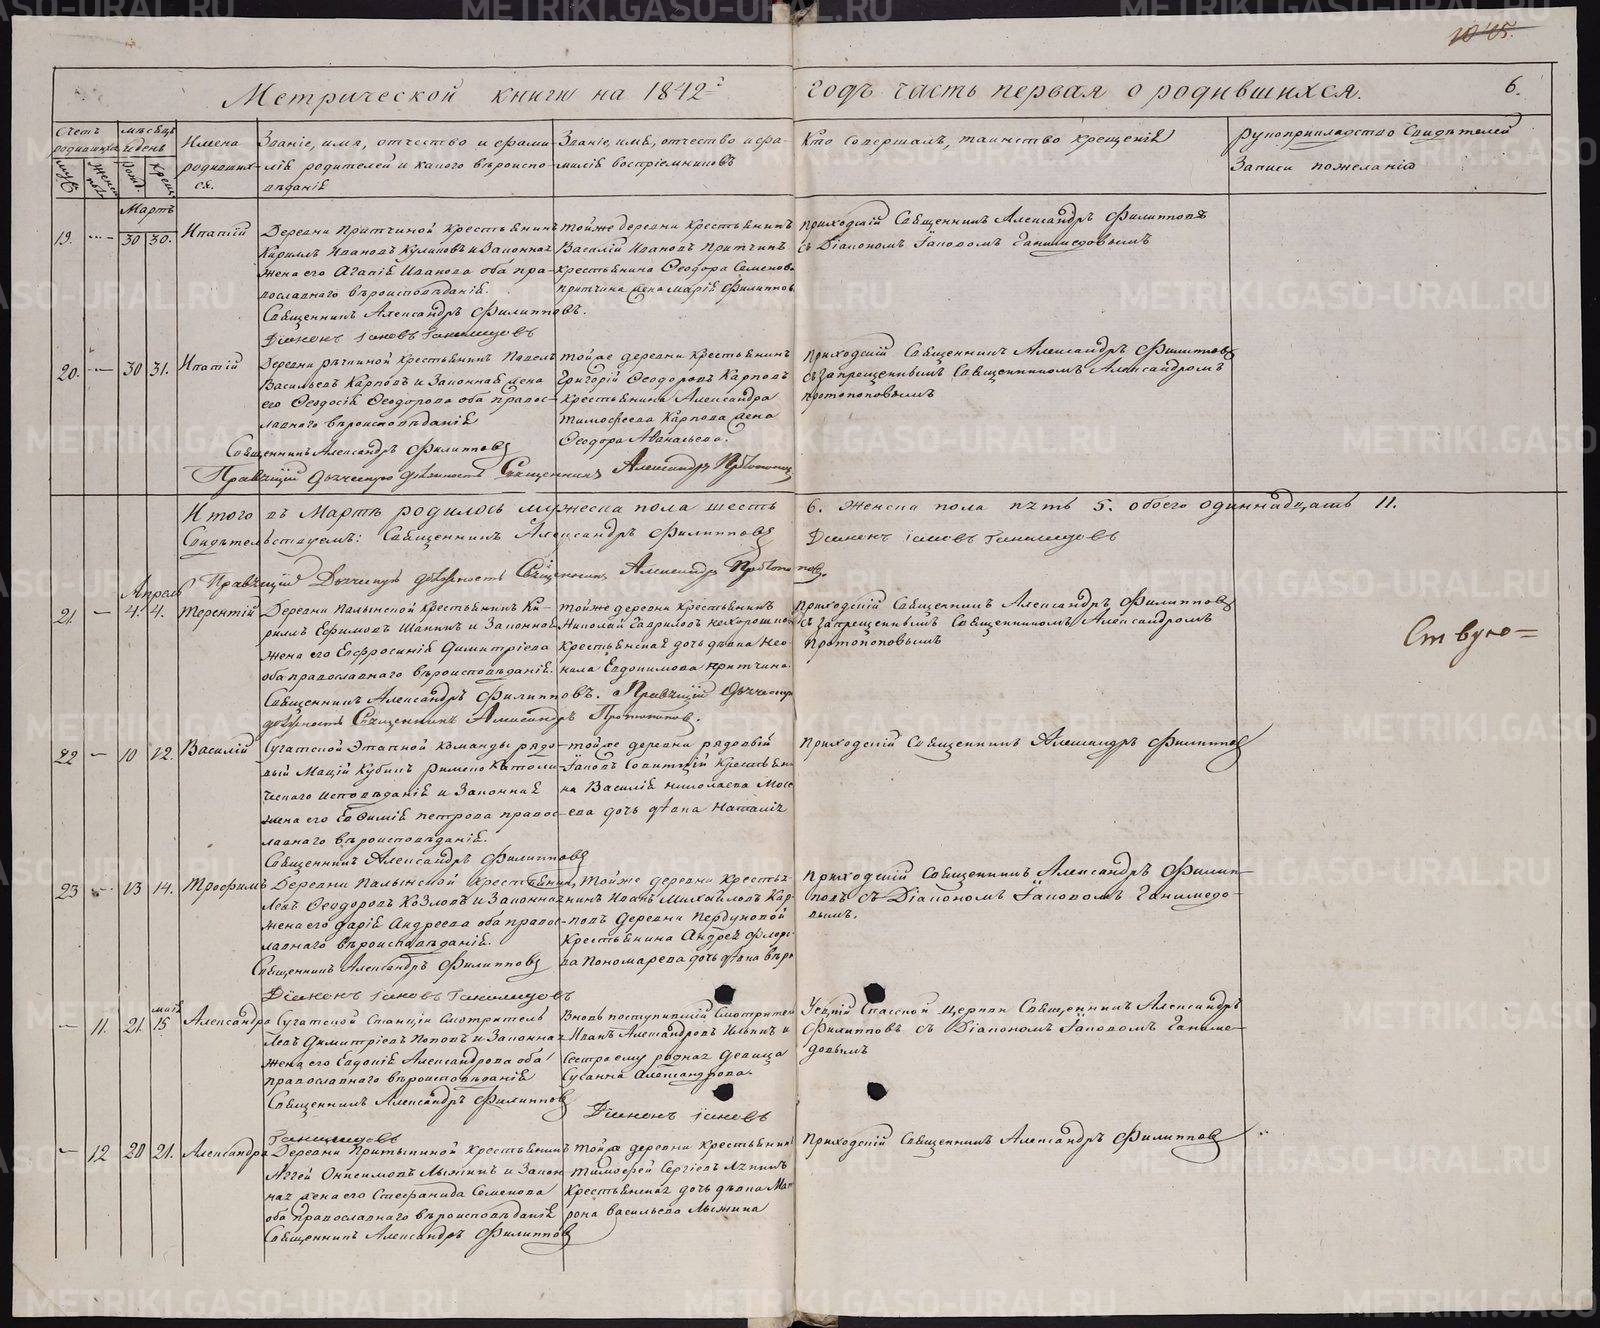 10 15.
Метрической книги на 1842й годъ часть первая о родившихся. 6.
Счетъ родившихся
муж. женс.
мѣсяцъ и день
рожд. крещ.
Имена родившихся.
Званіе, имя, отчество и фамилія родителей и какого вѣроисповѣданія
Званіе, имя, отчество и фамилія воспріемниковъ
Кто совершалъ таинство крещенія
Рукоприкладство свидѣтелей записи по желанію
Мартъ
19. — 30 30. Ипатій
Деревни Притчиной крестьянинъ
Кириллъ Ивановъ Куликовъ и законная
жена его Агапія Иванова оба пра-
вославнаго вѣроисповѣданія.
Священникъ Александръ Филипповъ.
Діаконъ Іаковъ Ганимедовъ
тойже деревни крестьянинъ
Василій Ивановъ Притчинъ
крестьянина Ѳеодора Семенова
притчина жена Марія Филиппов
приходскій Священникъ Александръ Филипповъ
съ Діакономъ Іаковомъ Ганимедовымъ
20. — 30 31. Ипатій
Деревни рѣчкиной крестьянинъ Павелъ
Васильевъ Карповъ и законная жена
его Ѳеодосія Ѳеодорова оба правос-
лавнаго вѣроисповѣданія
Священникъ Александръ Филипповъ
тойже деревни крестьянинъ
Григорій Ѳеодоровъ Карповъ
крестьянина Александра
Тимофеева Карпова жена
Ѳеодора Аѳанасьева.
Правящій дьяческую должность Священникъ Александръ Протопоповъ
приходскій Священникъ Александръ Филипповъ
съ запрещеннымъ Священникомъ Александромъ
протопоповымъ
Итого въ Мартѣ родилось мужеска пола шесть 6. женска пола пять 5. обоего одиннадцать 11.
Свидѣтельствуемъ: Священникъ Александръ Филипповъ
Діаконъ Іаковъ Ганимедовъ
Правящій Дьяческую должность Священникъ Александръ Протопоповъ.
Апрель
21. — 4. 4. Терентій
Деревни Палынской крестьянинъ Ки-
риллъ Ефимовъ Шапкинъ и законная
жена его Евфросинія Димитріева
оба православнаго вѣроисповѣданія.
Священникъ Александръ Филипповъ. Правящій дьяческую
должность Священникъ Александръ Протопоповъ.
тойже деревни крестьянинъ
Николай Гавриловъ
крестьянская дочь дѣвка Нео-
нила Евдокимова притчина.
приходскій Священникъ Александръ Филипповъ
съ запрещеннымъ Священникомъ Александромъ
Протопоповымъ
Ствую=
22 — 10 12. Василій
Сугатской Этапной команды рядо-
вый Мацій Кубикъ римско католи-
ческаго исповѣданія и законная
жена его Евфимія петрова правос-
лавнаго вѣроисповѣданія.
Священникъ Александръ Филипповъ
тойже деревни рядовый
Іаковъ крестьяни-
на Василія николаева Мосе-
ева дочь дѣвка Наталія
приходскій Священникъ Александръ Филипповъ
23 — 13 14. Трофимъ
Деревни Палынской крестьянинъ
Левъ Ѳеодоровъ Козловъ и законная
жена его дарія Андреева оба правос-
лавнаго вѣроисповѣданія.
Священникъ Александръ Филипповъ
Діаконъ Іаковъ Ганимедовъ
тойже деревни кресть-
янинъ Иванъ Михайловъ Кар-
повъ деревни Пердуновой
крестьянина Андрея
ва Пономарева дочь дѣвка вѣра
приходскій Священникъ Александръ Филип-
повъ съ Діакономъ Іаковомъ Ганимедо-
вымъ.
— 11. 21. маія 15 Александра
Сугатской Станціи Смотритель
Левъ Димитріевъ Поповъ и законная
жена его Евдокія Александрова оба
православнаго вѣроисповѣданія
Священникъ Александръ Филипповъ
Вновь поступившій Смотритель
Иванъ Александровъ Ильинъ и
сестра ему родная девица
Сусанна Александрова.
Діаконъ Іаковъ
Ганимедовъ
Спасской церкви Священникъ Александръ
Филипповъ съ Діакономъ Іаковомъ Ганиме-
довымъ
— 12 20 21. Александра
Деревни Притыкиной крестьянинъ
Аггей Онисимовъ Лыжинъ и закон-
ная жена его Стефанида Семенова
оба православнаго вѣроисповѣданія
Священникъ Александръ Филипповъ
тойже деревни крестьянинъ
Тимофей Сергіевъ
крестьянская дочь дѣвка Мат-
рона васильева Лыжина
приходскій Священникъ Александръ Филипповъ
METRIKI.GASO-URAL.RU